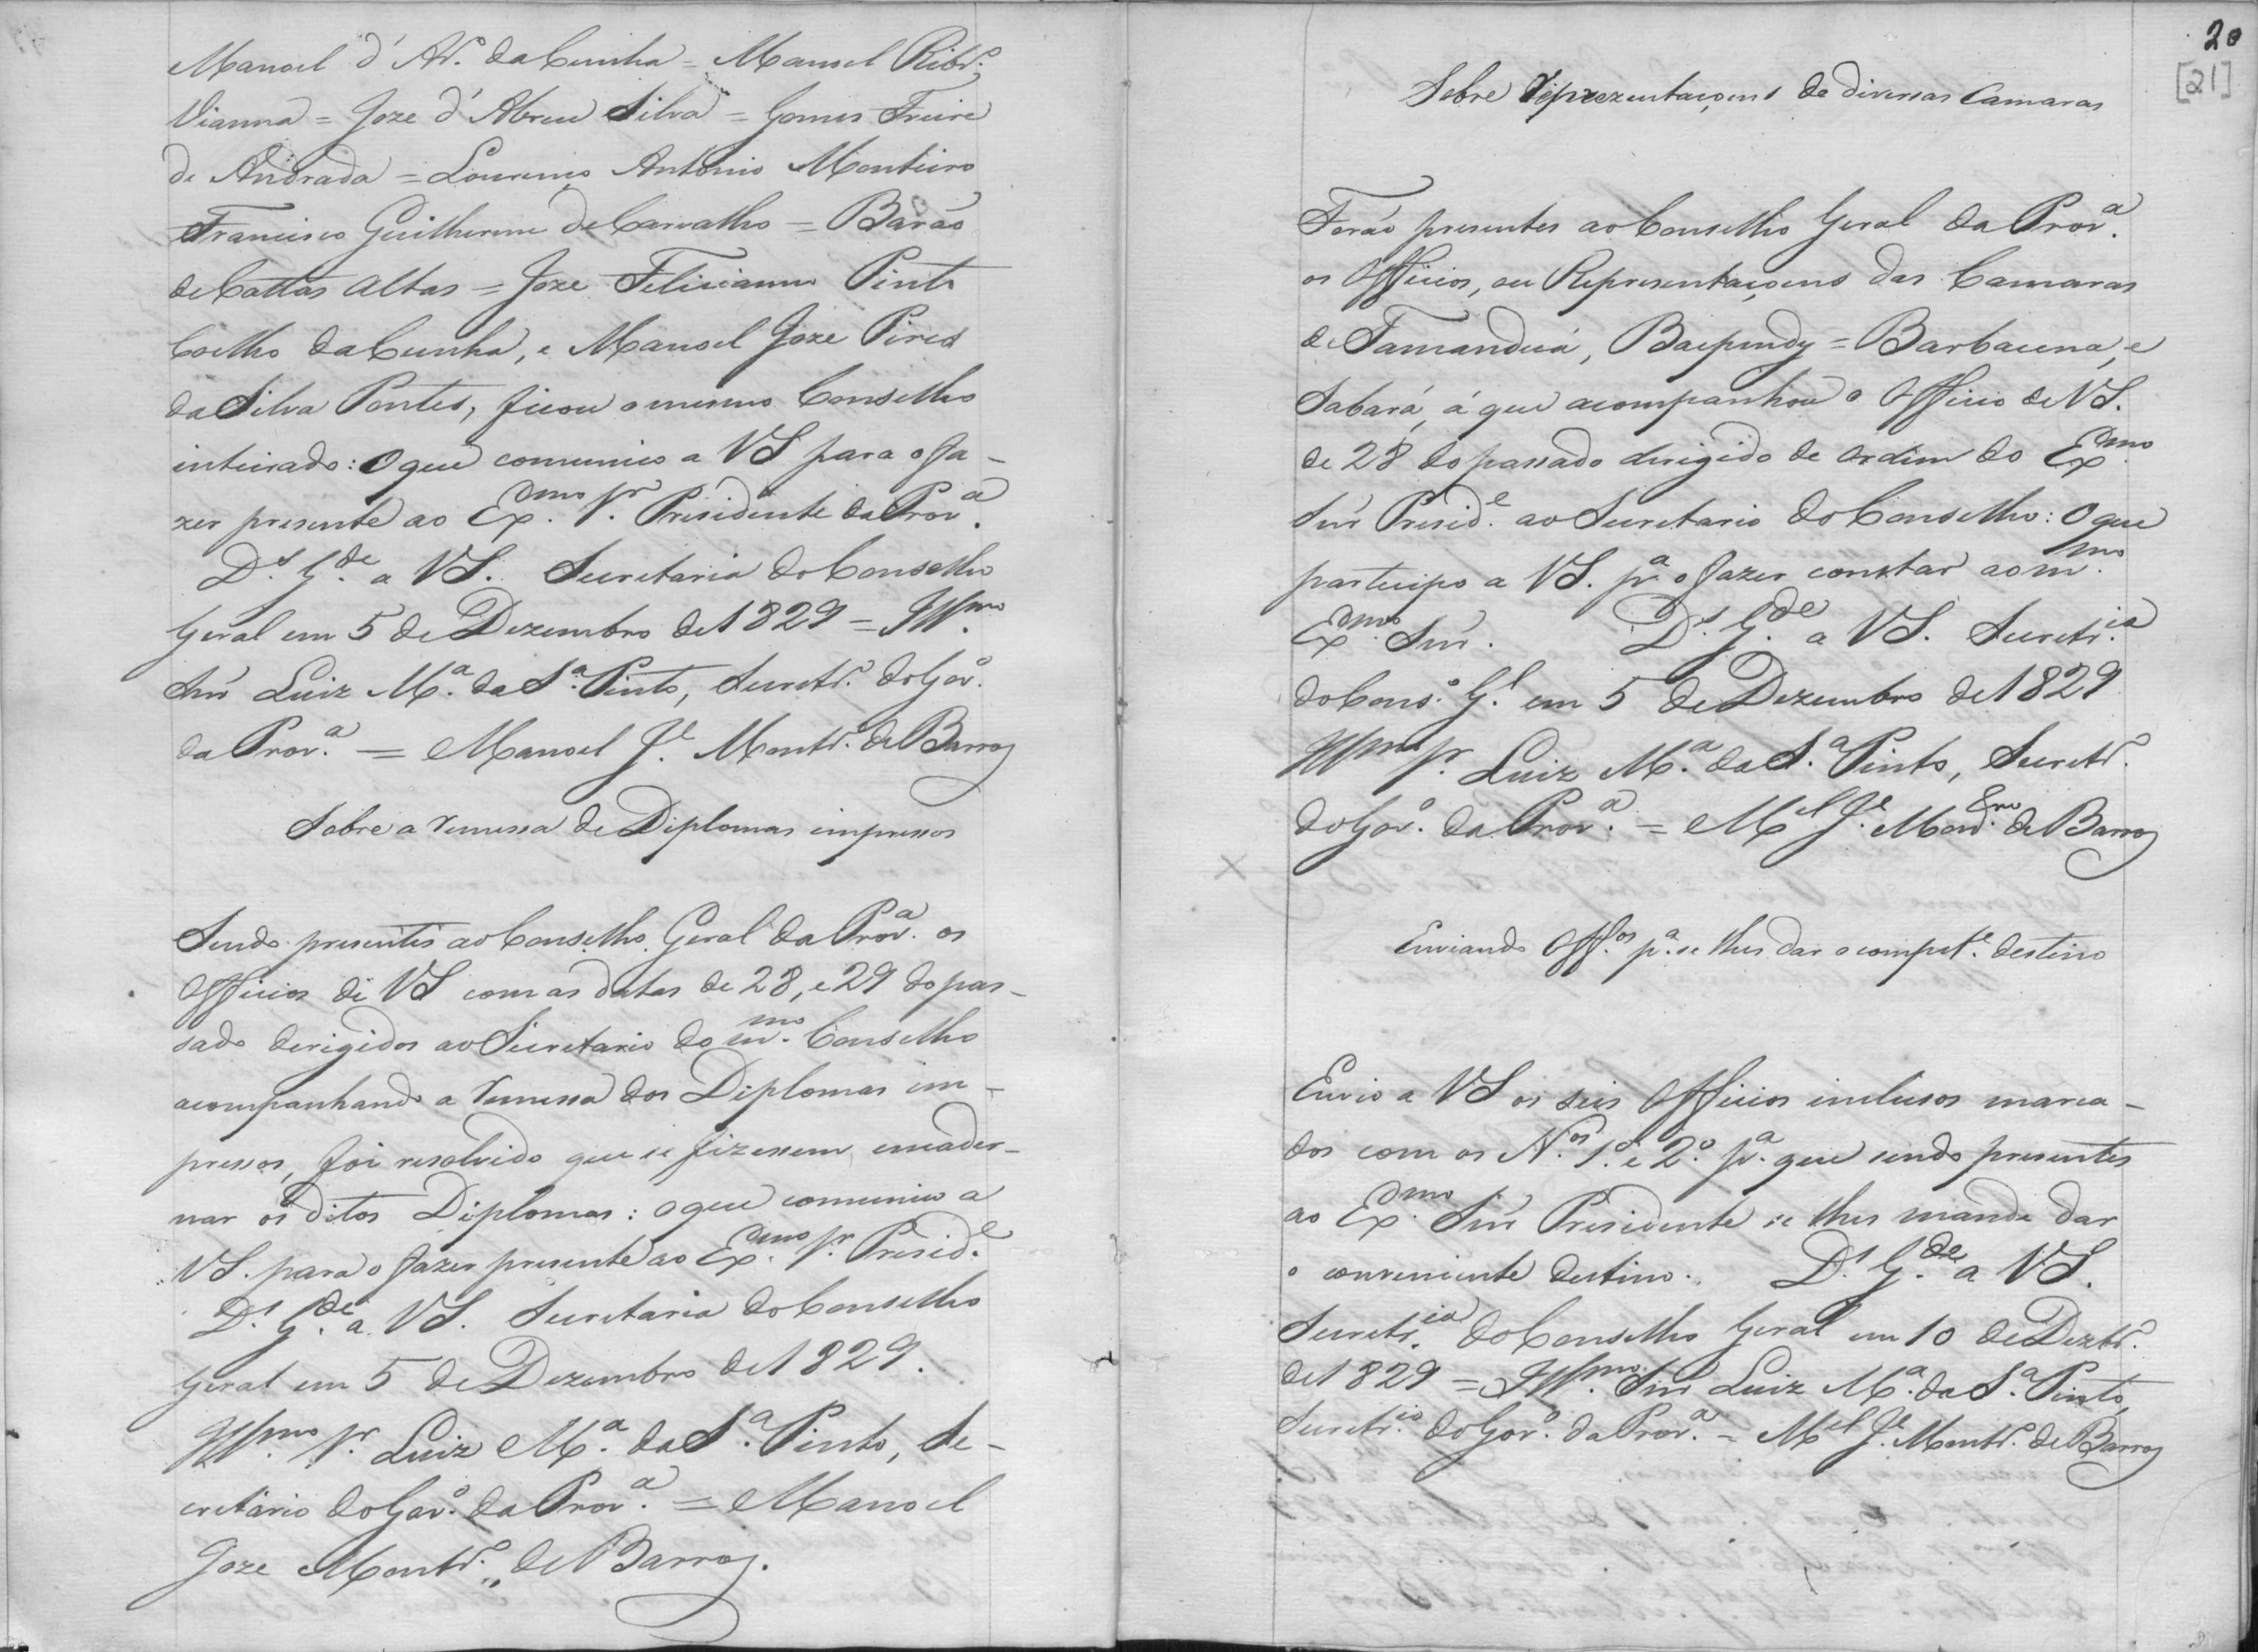 Manoel d'Az.º da Cunha = Manoel Ribr.º
Vianna = Joze d'Abreu Silva = Gomes Freire
de Andrada = Lourenço Antonio Monteiro
Francisco Guilherme de Carvalho = Barão
de Cattas Altas = Joze Feliciano Pinto
Coelho da Cunha, e Manoel Joze Pires
da Silva Pontes, ficou o mesmo Conselho
inteirado: O que comunico a VS para o fa-
zer presente ao Ex.mo Sr. Presidente da Prov.a
D.s G.de a VS. Secretaria do Conselho
Geral em 5 de Dezembro de 1829 = Ill.mo
Snr Luiz M.a da S.a Pinto, Secretr.º do Gov.º
da Prov.a = Manoel J.e Montr.º de Barros
Sobre a remessa de Diplomas impressos
Sendo presentes ao Conselho Geral da Prov.a os
Officios de VS com as datas de 28, e 29 do pas-
sado derigidos ao Secretario do m.mo Conselho
acompanhando a remessa dos Diplomas im-
pressos, foi resolvido que se fizessem encader-
nar os ditos Diplomas: o que comunico a
VS. para o fazer presente ao Ex.mo Sr. Presid.e
D.s G.de a VS. Secretaria do Conselho
Geral em 5 de Dezembro de 1829.
Ill.mo Sr. Luiz M.a da S.a Pinto, Se-
cretario do Gov.º da Prov.a = Manoel
Joze Montr.º de Barros.
20
[21]
Sobre reprezentaçoens de diversas Camaras
Forão presentes ao Conselho Geral da Prov.a
os Officios, ou Representaçoens das Camaras
de Tamanduá, Baependy = Barbacena, e
Sabará, á que acompanhou o Officio de VS.
de 28 do passado dirigido de ordem do Ex.mo
Snr Presid.e ao Secretario do Conselho: O que
participo a VS. p.a o fazer constar ao m.mo
Ex.mo Snr. D.s G.de a VS. Secretr.ia
do Cons.º G.l em 5 de Dezembro de 1829
Ill.mo Sr. Luiz M.a da S.a Pinto, Secretr.º
do Gov.º da Prov.a = M.el J.e de Barros
Enviando Off.os p.a se lhes dar o compet.e destino
Envio a VS os seis Officios inclusos marca-
dos com os N.os 1.º e 2.º p.a que sendo presentes
ao Ex.mo Snr Presidente se lhes mande dar
o conveniente destino. D.s G.de a VS.
Secretr.ia do Conselho Geral em 10 de Dezbr.º
de 1829 = Ill.mo Snr Luiz M.a da S.a Pinto,
Secretr.io do Gov.º da Prov.a = M.el J.e Montr.º de Barros